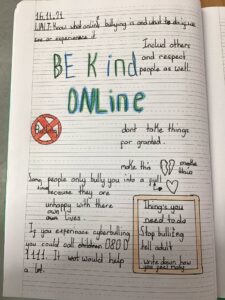 16.11.21
WALT: Know what online bullying is and what to do if we
see or experience it.
Includ others
and respect
people as well.
BE Kind
ONLine
dont take things
for granted.
make this
Some people only bully you into a
because they are
unhappy with there
own lives.
If you experience cyberbulling
you could call children 0800
1111. It would help
a lot.
Thing's you
need to do
Stop bulliling
tell adult
write down how
you feel